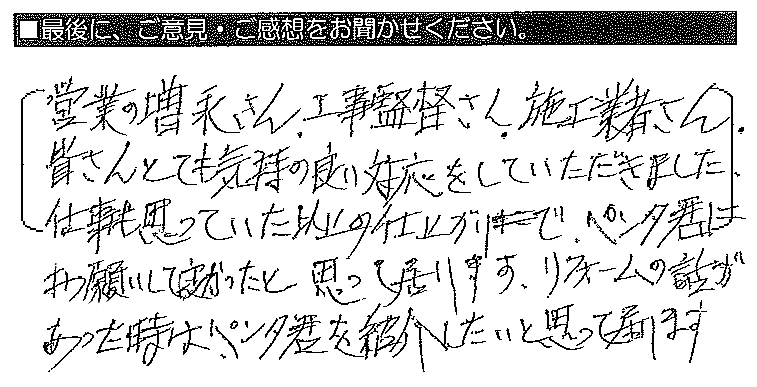 ■最後に、ご意見・ご感想をお聞かせください。
営業の増永さん、工事監督さん、施工業者さん、
皆さんとても気持の良い対応をしていただきました、
仕事も思っていた以上の仕上がりで、ペンタ君は
お願いして良かったと思って居ります、リフォームの話が
あった時はペンタ君を紹介したいと思って居ります